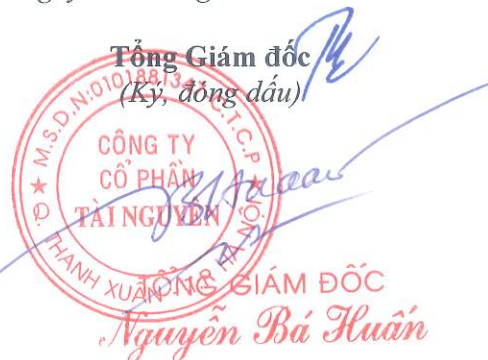 Tổng Giám đốc
(Ký, đóng dấu)
M.S.D.N:0101881347-C.T.C.P
CÔNG TY
CỔ PHẦN
TÀI NGUYÊN
Q. THANH XUÂN - TP HÀ NỘI
TỔNG GIÁM ĐỐC
Nguyễn Bá Huấn